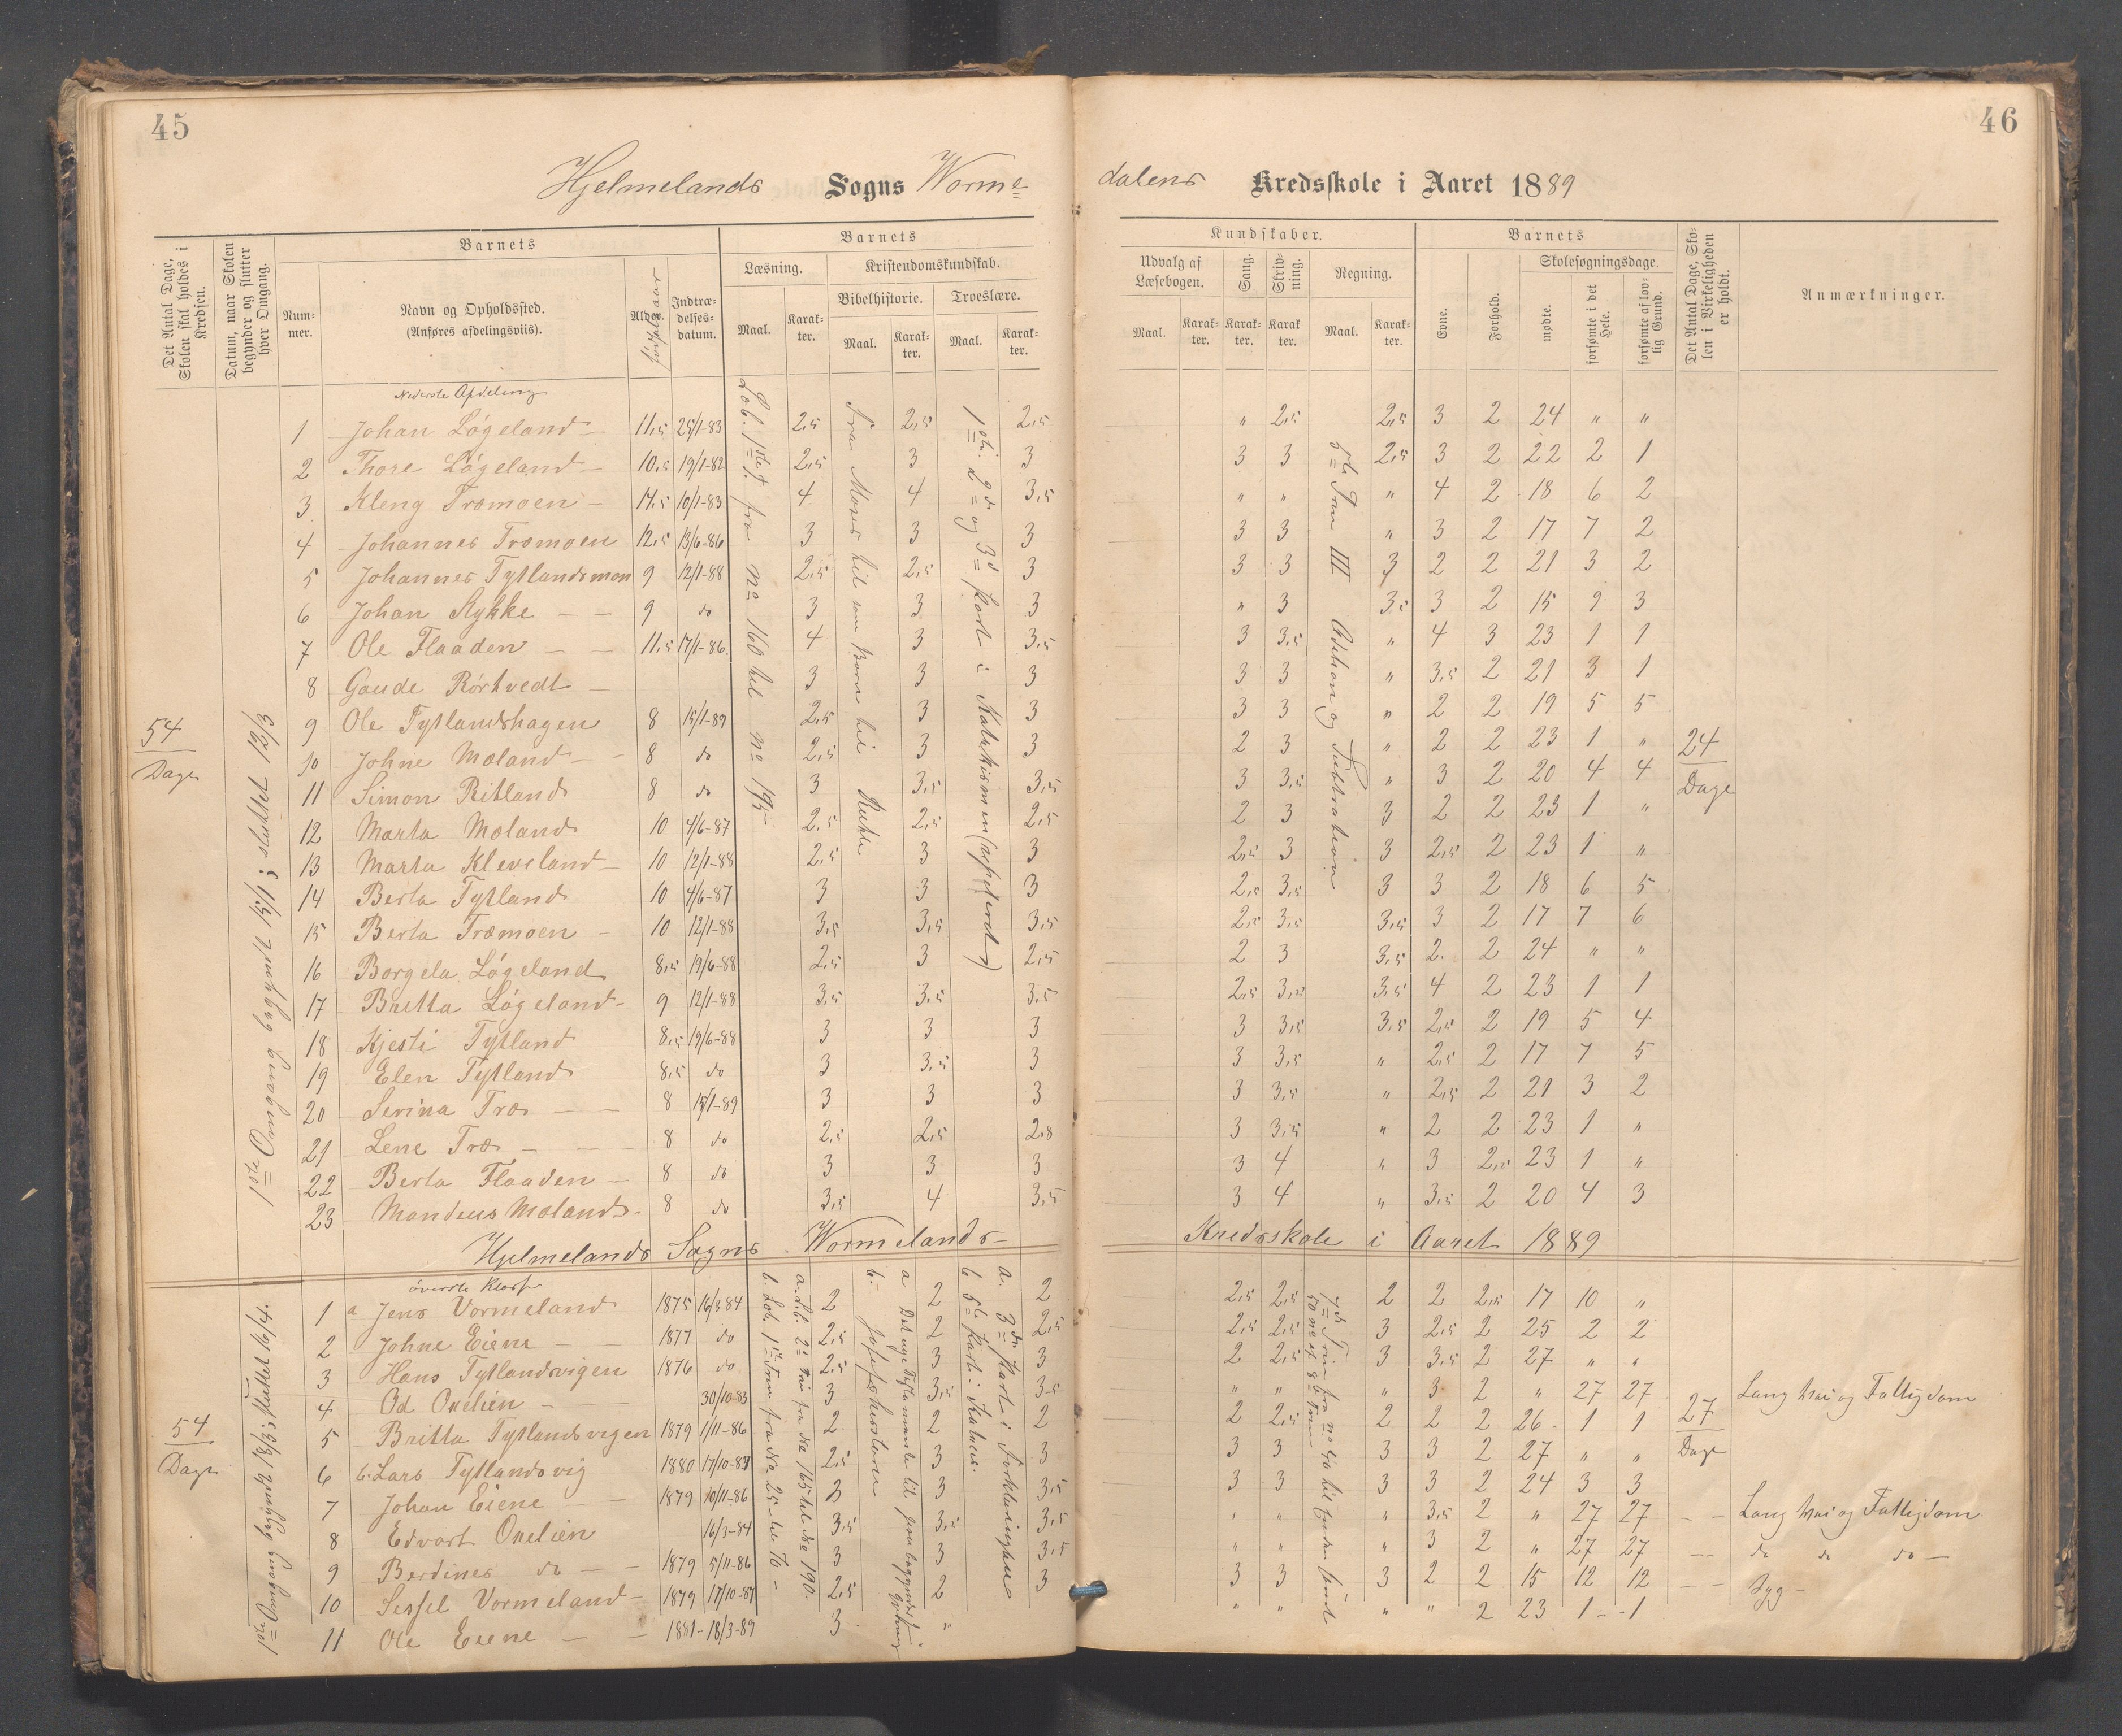 45
46
Hjelmelands Sogns Worme=
dalens Kredsskole i Aaret 1889
Det Antal Dage, Skolen skal holdes i Kredsen.
Datum, naar Skolen begynder og slutter hver Omgang.
Num-mer.
Barnets
Navn og Opholdssted.
(Anføres afdelingsviis).
Alder.
Indtræ-delses-datum.
Barnets
Læsning.
Maal.
Karak-ter.
Kristendomskundskab.
Bibelhistorie.
Maal.
Karak-ter.
Troeslære.
Maal.
Karak-ter.
Kundskaber.
Udvalg af Læsebogen.
Maal.
Karak-ter.
Sang.
Karak-ter.
Skriv-ning.
Karak-ter.
Regning.
Maal.
Karak-ter.
Barnets
Evne.
Forhold.
Skolesøgningsdage.
mødte.
forsømte i det Hele.
forsømte af lov-lig Grund.
Det Antal Dage, Sko-len i Virkeligheden er holdt.
Anmærkninger.
Nederste Afdeling
1 Johan Løgeland 11,5 25/1-83 2,5 2,5 2,5 " 2,5 2,5 3 2 24 " "
2 Thore Løgeland 10,5 19/1-82 2,5 3 3 3 3 2,5 3 2 22 2 1
3 Kleng Træmoen 11,5 10/1-83 4 4 3,5 " " " 4 2 18 6 2
4 Johannes Træmoen 12,5 13/6-86 3 3 3 3 3 " 3 2 17 7 2
5 Johannes Tytlandsmoen 9 12/1-88 2,5 2,5 3 3 3 3 2 2 21 3 2
6 Johan Stykke 9 do 3 3 3 " 3 3,5 3 2 15 9 3
7 Ole Flaaden 11,5 17/1-86 4 3 3,5 3 3,5 " 4 3 23 1 1
8 Gaude Rørtvedt 3 3 3 3 3 " 3,5 2 21 3 1
9 Ole Tytlandshagen 8 15/1-89 2,5 3 3 3 3 " 2 2 19 5 5
10 Johne Moland 8 do 2,5 3 3 2 3 " 2 2 23 1 "
11 Simon Ritland 8 do 3 3,5 3,5 3 3,5 " 3 2 20 4 4
12 Marta Moland 10 4/6-87 2,5 2,5 2,5 2 3 3 2 2 23 1 "
13 Marta Kleveland 10 12/1-88 2,5 3 3 2,5 3 3 2,5 2 23 1 "
14 Berta Tytland 10 4/6-87 3 3 3 2,5 3,5 3 3 2 18 6 5
15 Berta Træmoen 10 12/1-88 3,5 3,5 3,5 2,5 3,5 3,5 3 2 17 7 6
16 Borgela Løgeland 8,5 19/6-88 2,5 3 2,5 2 3 3,5 2 2 24 " "
17 Britta Løgeland 9 12/1-88 3,5 3,5 3,5 2,5 3,5 3,5 4 2 23 1 1
18 Kjesti Tytland 8,5 19/6-88 3 3 3 3 3,5 3,5 2,5 2 19 5 4
19 Elen Tytland 8,5 do 3 3,5 3 3 3,5 " 2,5 2 17 7 5
20 Serina Træ 8 15/1-89 3 3 3 3 3,5 " 2,5 2 21 3 2
21 Lene Træ 8 do 2,5 2,5 2,8 3 3,5 " 2 2 23 1 "
22 Berta Flaaden 8 do 3 3 3 3 4 " 3 2,5 23 1 "
23 Mandeus Moland 8 do 3,5 4 3,5 3 4 " 3,5 2 20 4 3
54 Dage
1ste Omgang begyndt 15/1; sluttet 12/3
Læb. 1ste T. fra no 160 til no 195
Fra Moses til som Børn til Rukke
1ste 2den og 3die Part i Katekismen (repeteret)
5te Trin III Addition og Subtraktion
24 Dage
Hjelmelands Sogns Wormelands Kredsskole i Aaret 1889
øverste Klasse
1 a Jens Vormeland 1875 16/3 84 2 2 2 2,5 2,5 2 2 2,5 17 10 "
2 Johne Eiene 1877 do 2,5 2 2,5 2,5 2,5 3 2,5 2 25 2 2
3 Hans Tytlandsvigen 1876 do 2,5 3 3 2 2,5 3 3,5 2 27 " "
4 Od Oxelien 30/10-83 3 3,5 3,5 " " " 3 2 " 27 27 Lang Vei og Fattigdom
5 Britta Tytlandsvigen 1879 1/11-86 2 2 2 2 2,5 2 2 2 26 1 1
6 b. Lars Tytlandsvig 1880 17/10-87 2,5 3 3 3 3 3 3 2 27 " "
7 Johan Eiene 1879 10/11-86 3 3 3,5 3 3 3 3 2 24 3 3
8 Edvart Oxelien 16/3-84 3,5 3,5 3,5 " " " 3,5 2 " 27 27 Lang Vei og Fattigdom
9 Berdines do 1879 5/11-86 3 3 3,5 " " " 3 2 " 27 27 do do do
10 Sissel Vormeland 1879 17/10-87 2,5 2 3 3 3 3 2 2 15 12 12 Syg
11 Ole Eiene 1881 18/3-89 3 " " " " " 2 23 1 1
54 Dage
1ste Omgang begyndt 18/3; sluttet 16/4.
a. Læb. 2det Trin fra No 165 til No 190
b. Læb. 1ste Trin fra No 25 til 70
a Det nye Testamente til
b. Josefs Historie
a. 3die Part i Forklaringen
b 5te Part i Katec.
27 Dage